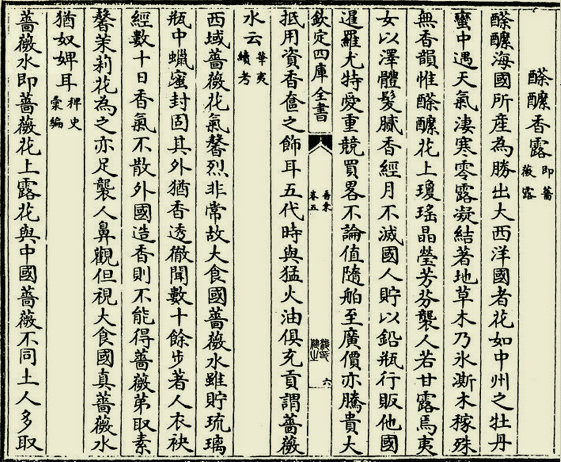 酴醿香露 即薔薇露
酴醿海國所産為勝出大西洋國者花如中州之牡丹
蠻中遇天氣淒寒零露凝結著地草木乃氷澌木稼殊
無香韻惟酴醿花上瓊瑤晶瑩芳芬襲人若甘露焉夷
女以澤體髮膩香經月不滅國人貯以鉛瓶行販他國
暹羅尤特愛重競買畧不論值隨舶至廣價亦騰貴大
欽定四庫全書
卷五
六
抵用資香奩之飾耳五代時與猛火油俱充貢謂薔薇
水云 華夷續考
西域薔薇花氣馨烈非常故大食國薔薇水雖貯琉璃
瓶中蠟蜜封固其外猶香透徹聞數十餘步著人衣袂
經數十日香氣不散外國造香則不能得薔薇第取素
馨茉莉花為之亦足襲人鼻觀但視大食國真薔薇水
猶奴婢耳 稗史彙編
薔薇水即薔薇花上露花與中國薔薇不同土人多取